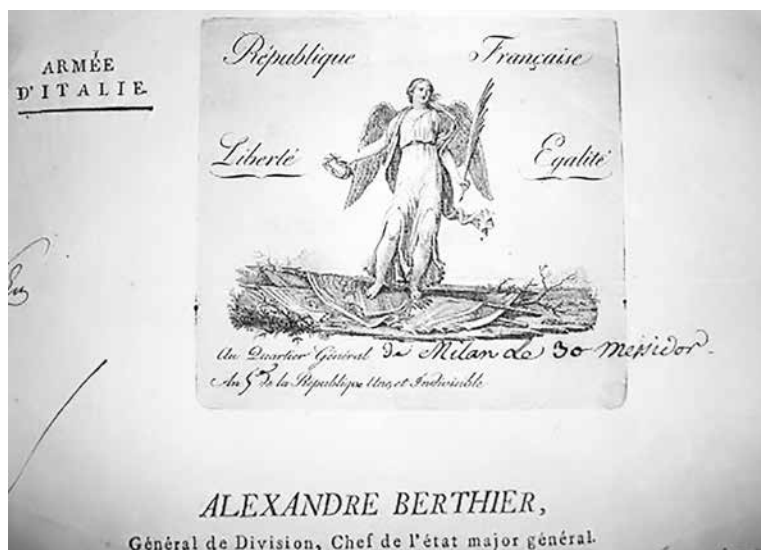 ARMÉE
D'ITALIE.
République Française
Liberté Egalité
Au Quartier Général de Milan le 30 messidor.
An 5e de la République Une, et Indivisible
ALEXANDRE BERTHIER,
Général de Division, Chef de l'état major général.